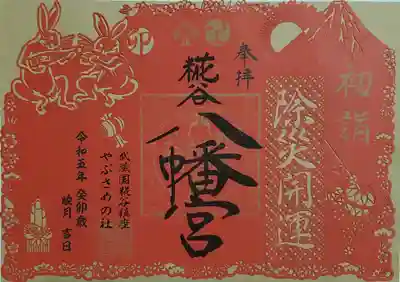 初詣
除災開運
奉拝
糀谷
八幡宮
武蔵国糀谷鎮座
やぶさめの社
令和五年 癸卯歳
睦月 吉日
卯